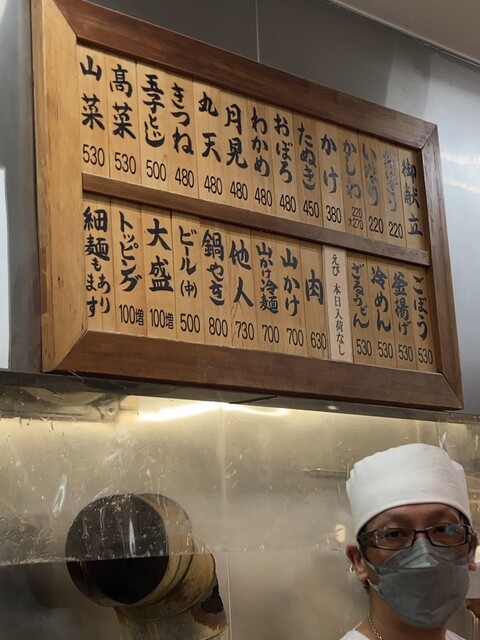 御献立
220
いなり 220
かしわ 220 大270
かけ 380
たぬき 450
おぼろ 480
わかめ 480
月見 480
丸天 480
きつね 480
玉子とじ 500
髙菜 530
山菜 530
ごぼう 530
釜揚げ 530
冷めん 530
ざるうどん 530
えび 本日入荷なし
肉 630
山かけ 700
山かけ冷麺 700
他人 730
鍋やき 800
ビール(中) 500
大盛 100増
トッピング 100増
細麺もあります